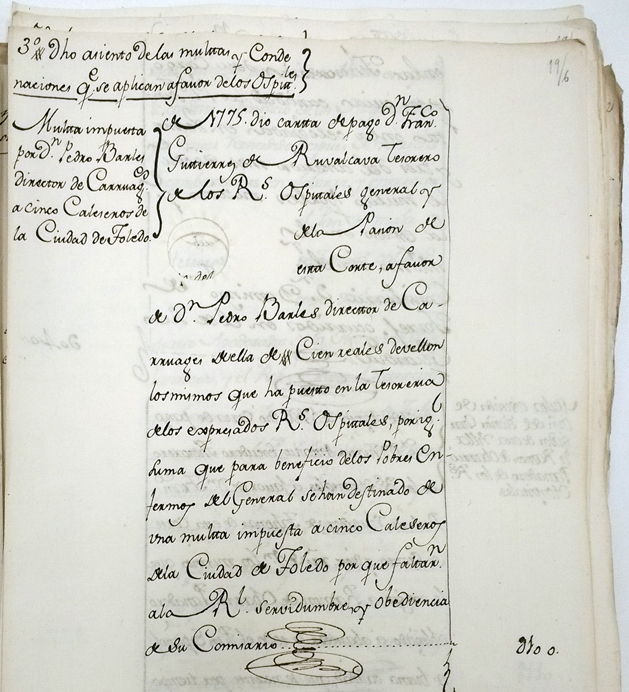 3º dho asiento de las multas y Conde
naciones q.e se aplican a favor de los Ospit.les
19/6
Multa impuesta
por D.n Pedro Barles
director de Carruag.s
a cinco Caleseros de
la Ciudad de Toledo.
de 1775. dio carta de pago D.n Fran.co
Gutierrez de Ruvalcava Tesorero
de los R.s Ospitales general y
de la Pasion de
esta Corte, a favor
de D.n Pedro Barles director de Ca-
rruages de ella de Cien reales de vellon
los mimos que ha puesto en la Tesoreria
de los expresados R.s Ospitales, por ig.l
suma que para beneficio de los Pobres En-
fermos del General se han destinado de
una multa impuesta a cinco Caleseros
de la Ciudad de Toledo por que faltar.n
a la R.l servidumbre y obediencia
de su Comisario
100.